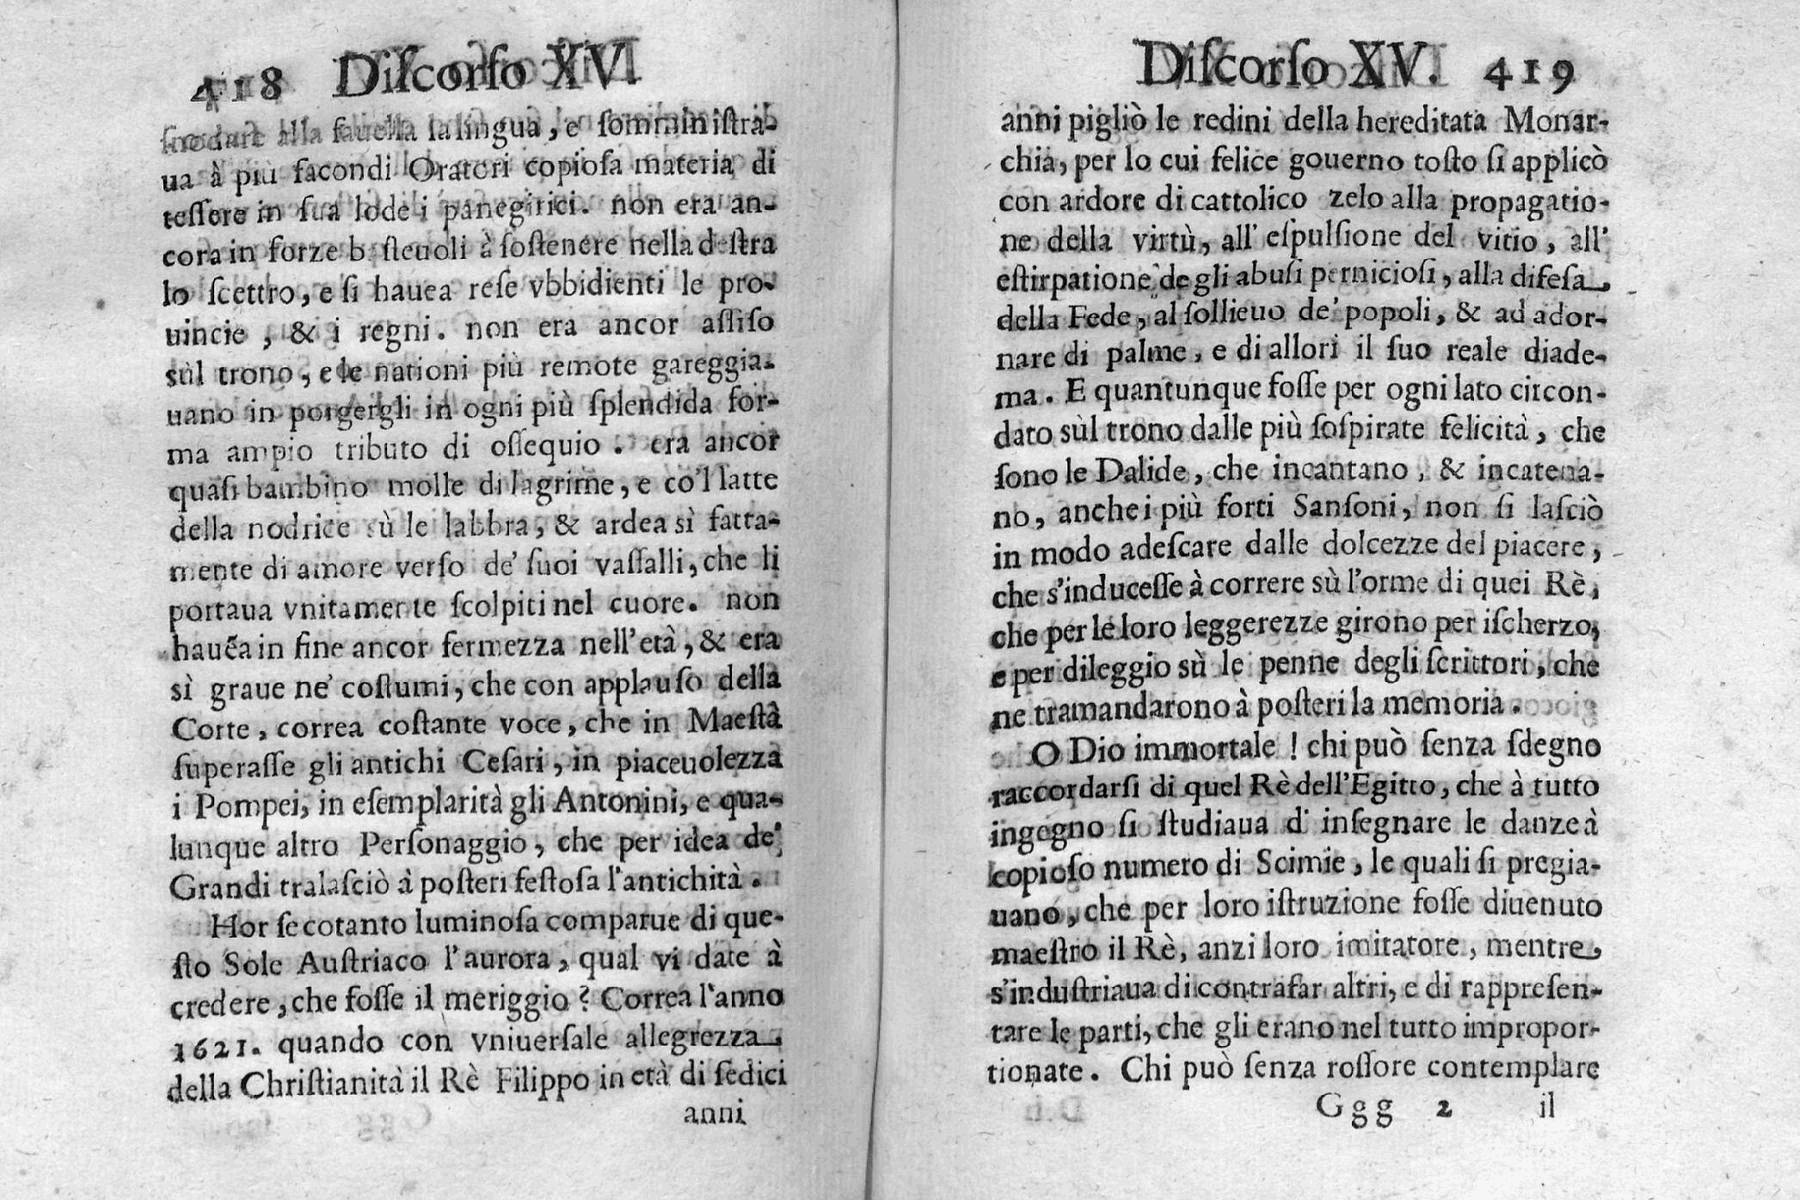 418 Diſcorſo XVI
ſnodare alla fauella la lingua, e ſomminiſtra-
ua à più facondi Oratori copioſa materia di
teſſere in ſua lode i panegirici. non era an-
cora in forze b ſteuoli à ſoſtenere nella deſtra
lo ſcettro, e ſi hauea reſe vbbidienti le pro-
uincie, & i regni. non era ancor aſſiſo
sùl trono, e le nationi più remote gareggia-
uano in porgergli in ogni più ſplendida for-
ma ampio tributo di oſſequio. era ancor
quaſi bambino molle di lagrime, e co'l latte
della nodrice sù le labbra, & ardea sì fatta-
mente di amore verſo de' ſuoi vaſſalli, che li
portaua vnitamente ſcolpiti nel cuore. non
hauea in fine ancor fermezza nell'età, & era
sì graue ne' coſtumi, che con applauſo della
Corte, correa coſtante voce, che in Maeſtà
ſuperaſſe gli antichi Ceſari, in piaceuolezza
i Pompei, in eſemplarità gli Antonini, e qua-
lunque altro Perſonaggio, che per idea de'
Grandi tralaſciò à poſteri feſtoſa l'antichità.
Hor ſe cotanto luminoſa comparue di que-
ſto Sole Auſtriaco l'aurora, qual vi date à
credere, che foſſe il meriggio? Correa l'anno
1621. quando con vniuerſale allegrezza
della Chriſtianità il Rè Filippo in età di ſedici
anni
Diſcorſo XV. 419
anni pigliò le redini della hereditata Monar-
chia, per lo cui felice gouerno toſto ſi applicò
con ardore di cattolico zelo alla propagatio-
ne della virtù, all' eſpulſione del vitio, all'
eſtirpatione de gli abuſi pernicioſi, alla difeſa
della Fede, al ſollieuo de' popoli, & ad ador-
nare di palme, e di allori il ſuo reale diade-
ma. E quantunque foſſe per ogni lato circon-
dato sùl trono dalle più ſoſpirate felicità, che
ſono le Dalide, che incantano, & incatena-
no, anche i più forti Sanſoni, non ſi laſciò
in modo adeſcare dalle dolcezze del piacere,
che s'induceſſe à correre sù l'orme di quei Rè,
che per le loro leggerezze girono per iſcherzo,
e per dileggio sù le penne degli ſcrittori, che
ne tramandarono à poſteri la memoria.
O Dio immortale! chi può ſenza ſdegno
raccordarſi di quel Rè dell'Egitto, che à tutto
ingegno ſi ſtudiaua d' inſegnare le danze à
copioſo numero di Scimie, le quali ſi pregia-
uano, che per loro iſtruzione foſſe diuenuto
maeſtro il Rè, anzi loro imitatore, mentre
s'induſtriaua di contrafar altri, e di rappreſen-
tare le parti, che gli erano nel tutto impropor-
tionate. Chi può ſenza roſſore contemplare
Ggg 2 il